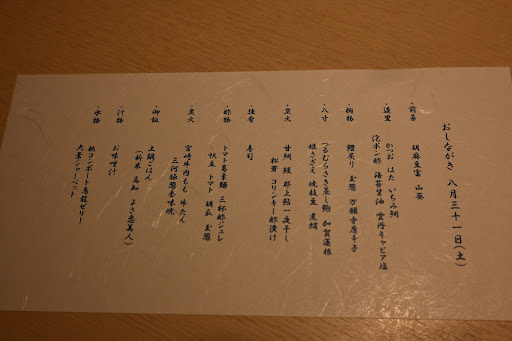 おしながき 八月三十一日(土)
・前菜 胡麻豆富 山葵
・造里 かつお はた いちみ鯛
佗ポン酢 海苔醤油 雲丹キャビア塩
・椀物 鱧炙り 玉葱 万願寺唐辛子
・八寸 つるむらさき蒸し鮑 加賀蓮根
姫さざえ 焼枝豆 煮蛸
・炭火 甘鯛 鰻 郡上鮎一夜干し
松茸 コリンキー酢漬け
・強肴 寿司
・酢物 トマト葛素麺 三杯酢ジュレ
帆立 トマト 胡瓜 玉葱
・炭火 宮崎牛内もも 牛たん
三河豚葱香味焼
・御飯 土鍋ごはん
(新米 高知 よさ恋美人)
・汁物 お味噌汁
・水物 桃コンポート烏龍ゼリー
大葉シャーベット